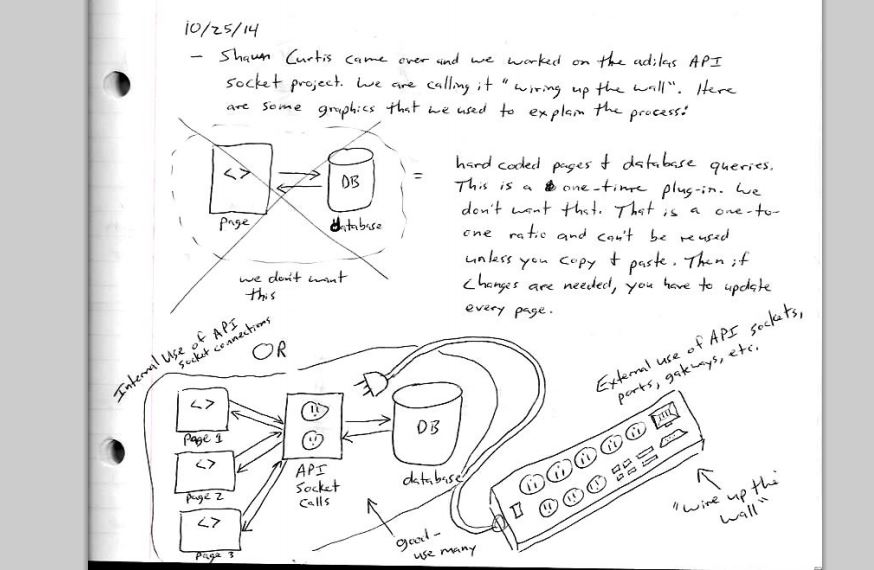 10/25/14
– Shawn Curtis came over and we worked on the adilas API
socket project. We are calling it "wiring up the wall". Here
are some graphics that we used to explain the process:
<>
DB
page
database
we don't want
this
=
hard coded pages & database queries.
This is a one-time plug-in. We
don't want that. That is a one-to-
one ratio and can't be reused
unless you copy & paste. Then if
changes are needed, you have to update
every page.
OR
Internal Use of API
socket connections
<>
page 1
<>
page 2
<>
page 3
API
Socket
Calls
DB
database
good -
use many
External use of API sockets,
ports, gateways, etc.
"wire up the
wall"